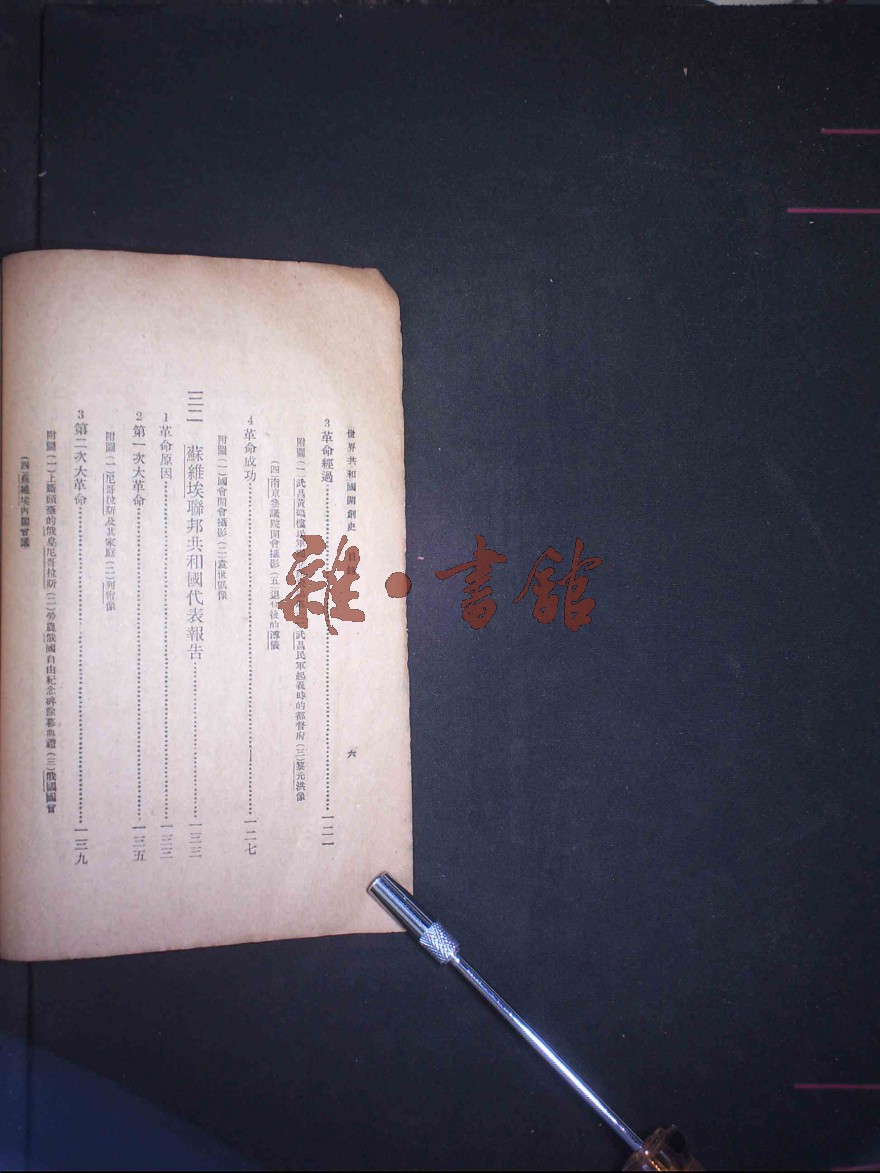 世界共和國開創史 目錄 六
3革命經過……一二一
附圖(一)武昌黃鶴樓 武昌民軍起義時的都督府(三)黎元洪像
(四)南京參議院開會攝影(五)退位後的溥儀
4革命成功……一二七
附圖(一)國會開會攝影(二)袁世凱像
三二 蘇維埃聯邦共和國代表報告……一三三
1革命原因……一三三
2第一次大革命……一三五
附圖(一)尼哥拉斯及其家庭(二)列甯像
3第二次大革命……一三九
附圖(一)上斷頭臺的俄皇尼哥拉斯(二)勞農俄國自由紀念碑除幕典禮(三)俄國國會
(四)蘇維埃內閣會議
雜·書館